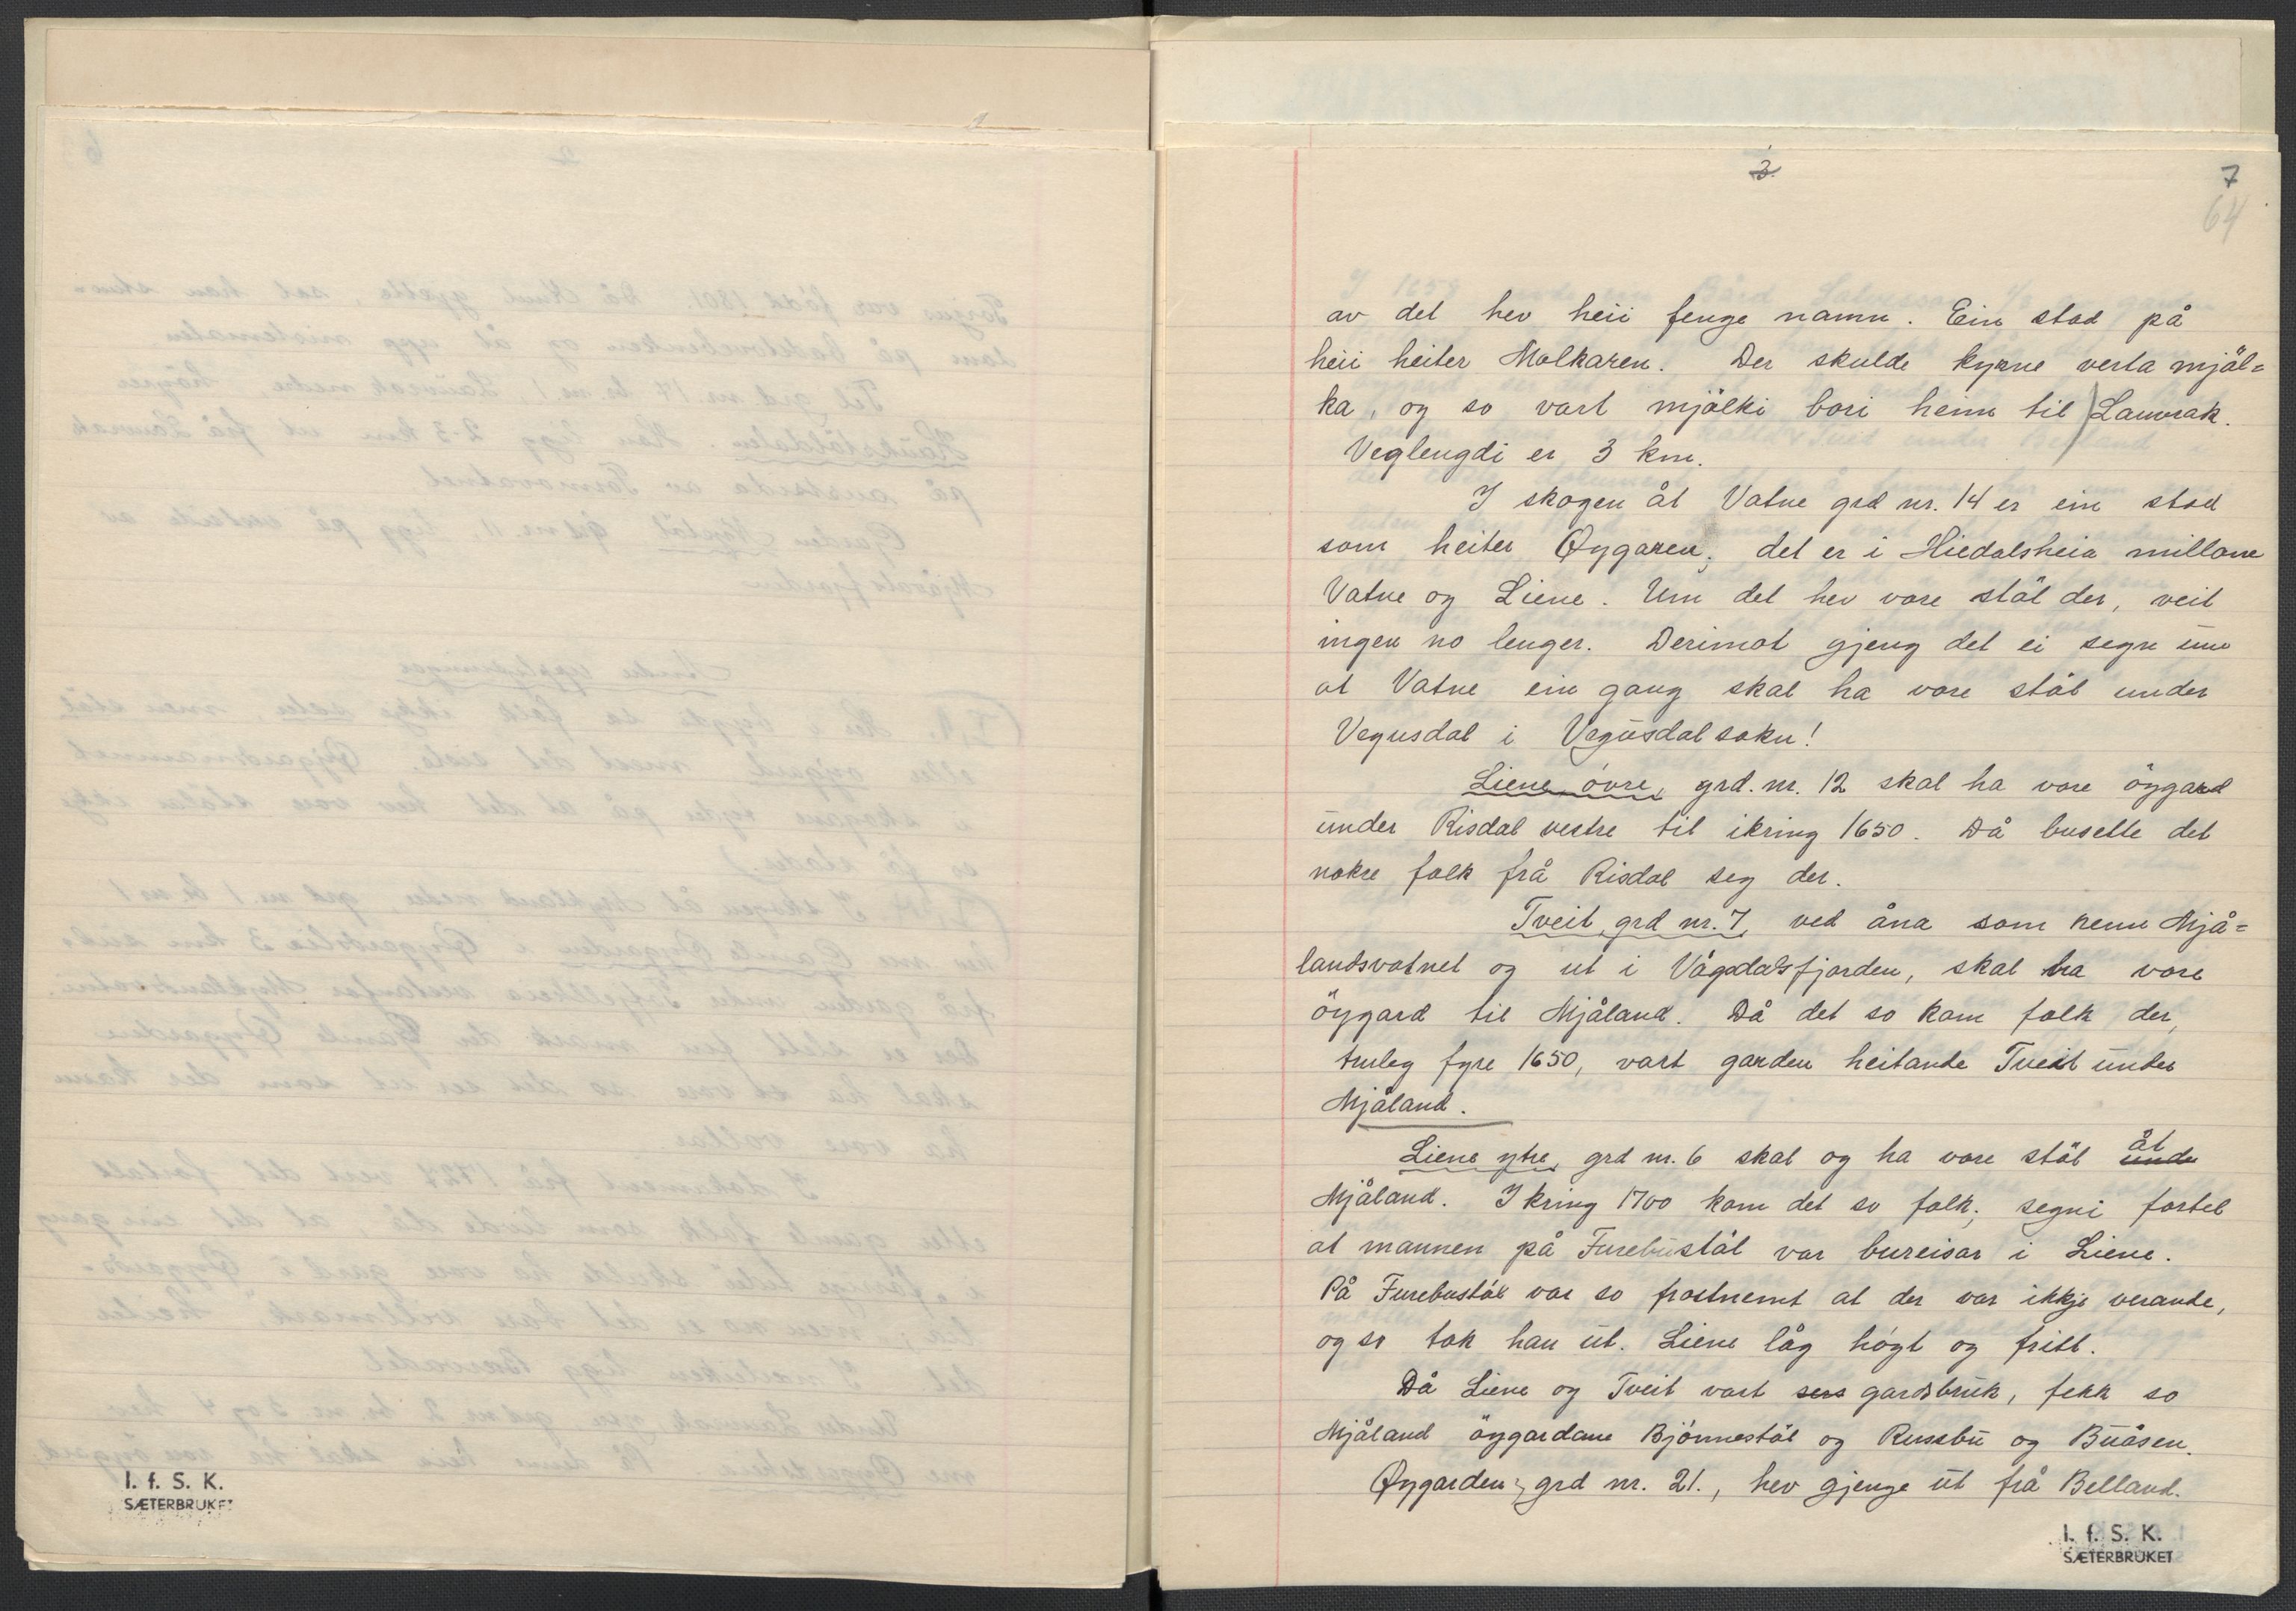 3.
7
64
av det hev heii fenge namn. Ein stad på
heii heiter Molkaren. Der skulde kyrne verta mjöl=
ka, og so vart mjölki bori heim til Lauvrak.
Veglengdi er 3 km.
I skogen åt Vatne grd nr. 14 er ein stad
som heiter Øygaren; det er i Hiedalsheia millom
Vatne og Liene. Um det hev vore stöl der, veit
ingen no lenger. Derimot gjeng det ei segn um
at Vatne ein gang skal ha vore stöl under
Vegusdal i Vegusdal sokn!
Liene övre, grd. nr. 12 skal ha vore öygard
under Risdal vestre til ikring 1650. Då busette det
nokre folk frå Risdal seg der.
Tveit, grd nr. 7, ved åna som renn Mjå=
landsvatnet og ut i Vågsdalsfjorden, skal ha vore
öygard til Mjåland. Då det so kom folk der,
truleg fyre 1650, vart garden heitande Tveit under
Mjåland.
Liene ytre, grd nr. 6 skal og ha vore stöl unde åt
Mjåland. Ikring 1700 kom det so folk; segni fortel
at mannen på Furebustöl var bureisar i Liene.
På Furebustöl var so frostnemt at der var ikkje verande,
og so tok han ut. Liene låg högt og fritt.
Då Liene og Tveit vart sers gardsbruk, fekk so
Mjåland öygardane Bjönnestöl og Russbu og Buåsen.
Øygarden, grd nr. 21., hev gjenge ut frå Belland.
I. f. S. K.
SÆTERBRUKET
I. f. S. K.
SÆTERBRUKET